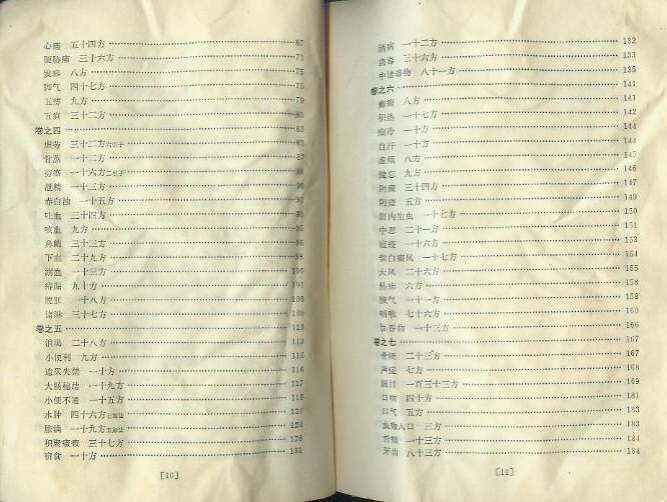 心痛 五十四方 67
腰胁痛 三十六方 71
发痧 八方 75
脚气 四十七方 75
五疸 九方 79
五痫 三十二方
卷之四 83
虚劳 三十二方
骨蒸 一十二方 87
劳瘵 一十六方
泄精 一十三方 90
赤白浊 一十五方
吐血 三十四方
咳血 九方 95
鼻衄 三十三方 96
下血 二十九方 98
溺血 一十三方 100
痔漏 九方 101
脱肛 一十八方
诸淋 三十七方
卷之五 113
消渴 二十八方
小便利 九方 115
遗尿失禁 一十方 116
大肠秘结 一十九方 117
小便不通 一十五方 118
水肿 四十六方 120
胀满 一十九方 124
积聚癥瘕 三十七方
宿食 一十方
[10]
一十二方 132
蛊毒 三十六方 133
中诸毒物 八十一方 135
卷之六 141
八方 141
积热 一十七方 142
痼冷 一十方 144
自汗 一十方 144
虚烦 八方 145
健忘 九方 146
阴癞 三十四方 147
阴疮 五方 149
腹内生虫 一十七方 150
中恶 二十一方 151
一十六方 153
紫白癜风 一十七方 154
大风 二十六方 155
六方 158
腋气 一十一方 158
咽喉 七十六方 160
误吞物 一十三方 166
卷之七 167
骨鲠 二十三方 167
声喑 七方 168
眼目 一百三十三方 169
口吻 四十方 181
口气 五方 183
虫物入口 三方 183
舌 一十三方 184
牙齿 八十三方 184
[11]